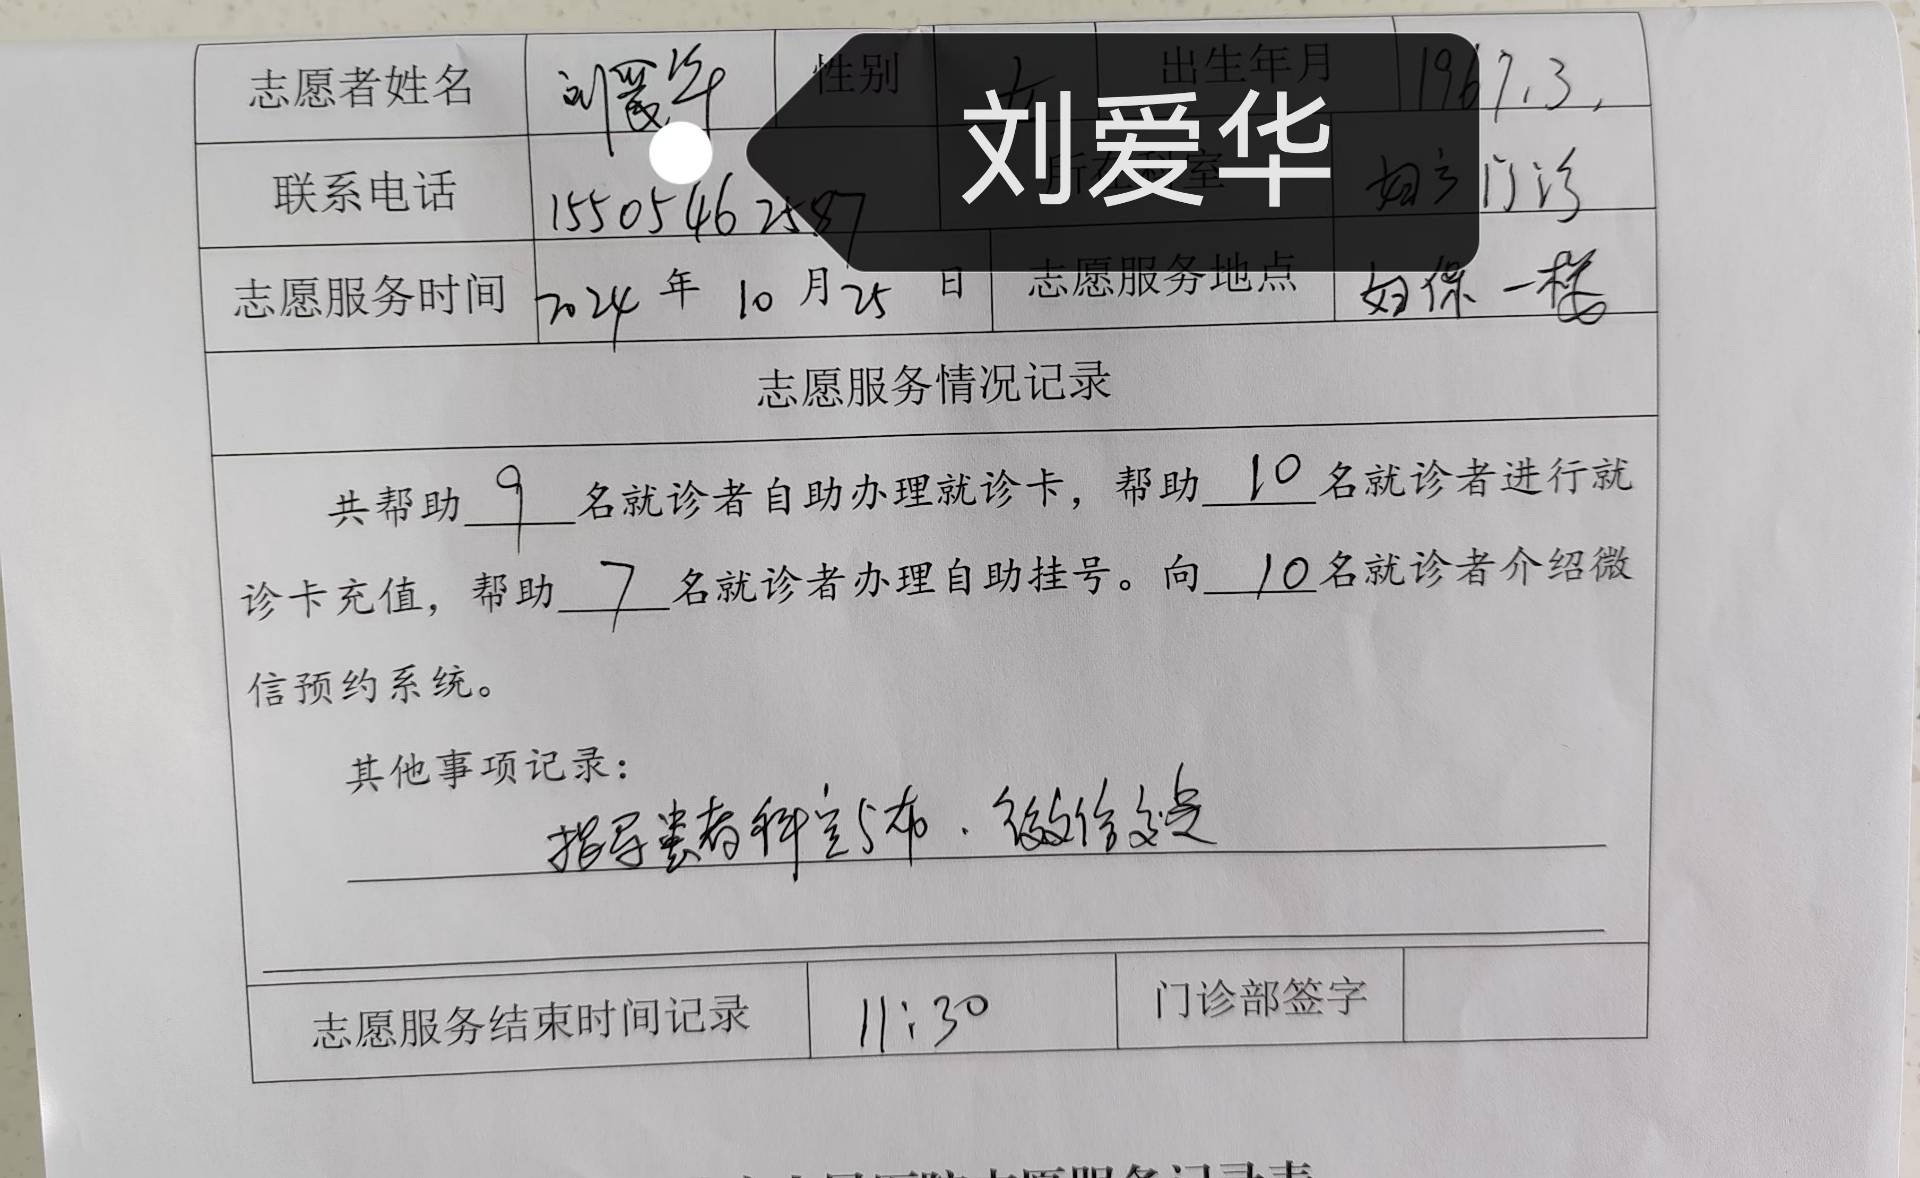 志愿者姓名 刘爱华 性别 女 出生年月 1967.3.
刘爱华
联系电话 15505462587 所在科室 妇产门诊
志愿服务时间 2024年10月25日 志愿服务地点 妇保一楼
志愿服务情况记录
共帮助9名就诊者自助办理就诊卡，帮助10名就诊者进行就
诊卡充值，帮助7名就诊者办理自助挂号。向10名就诊者介绍微
信预约系统。
其他事项记录：
指导患者科室分布.微信
志愿服务结束时间记录 11:30 门诊部签字